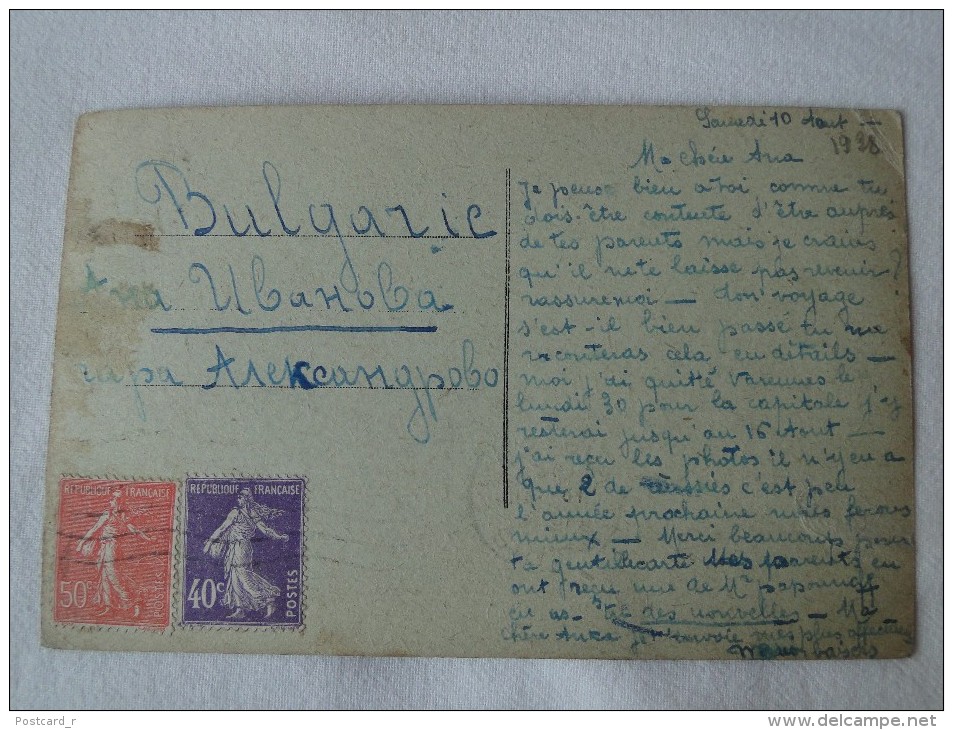 Samedi 10 Aout —
1928
Ma chée Ana
Je pense bien a toi comme tu
dois-être contente d'être auprès
de tes parents mais je crains
qu'il ne te laisse pas revenir?
rassure moi — ton voyage
s'est-il bien passé tu me
raconteras cela en détails —
moi j'ai quitté Varennes le
lundi 30 pour la capitale j'y
resterai jusqu'au 16 Aout —
j'ai reçu les photos il n'y en a
que 2 de réussies c'est peu
l'année prochaine nous ferons
mieux — Merci beaucoup pour
ta gentille carte Mes parents en
ont reçu une de Mr
en as-tu des nouvelles — Ma
chère Anka je t'envoie mes plus affectueux
baisers
Bulgarie
Ана Иванова
гара Александрово
REPUBLIQUE FRANÇAISE
50c
POSTES
REPUBLIQUE FRANÇAISE
40c
POSTES
Postcard_r
www.delcampe.net